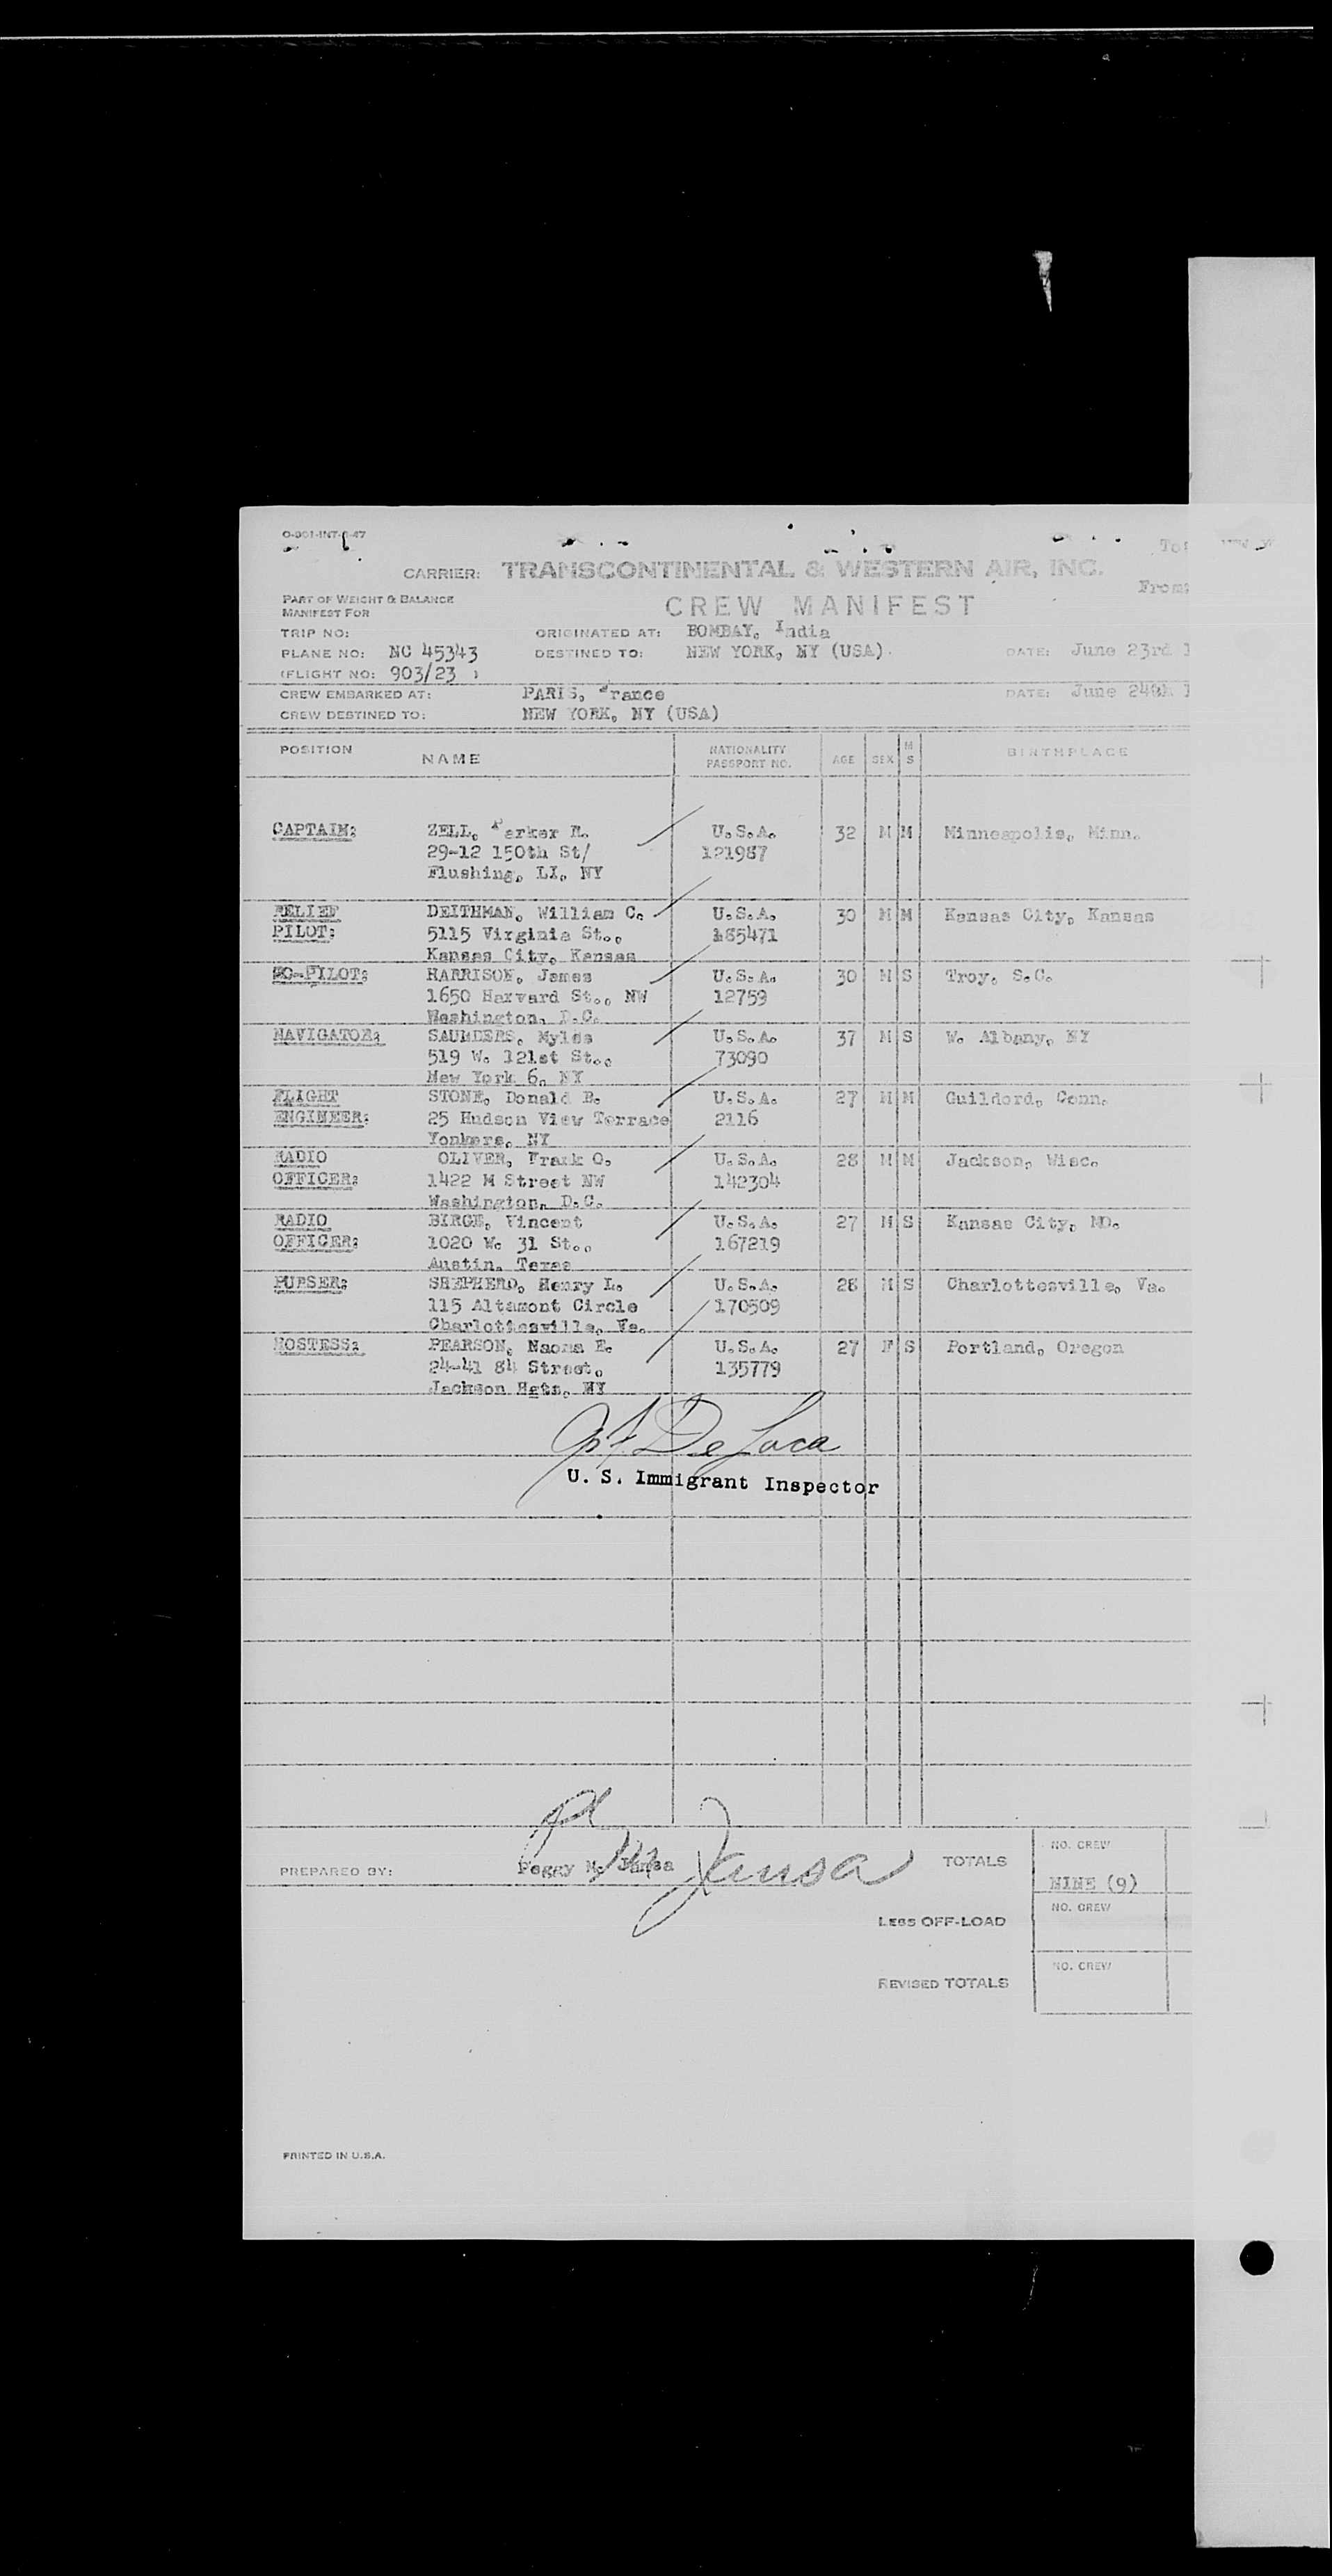 O-901-INT-6-47
To:
CARRIER: TRANSCONTINENTAL & WESTERN AIR, INC.
From:
PART OF WEIGHT & BALANCE
MANIFEST FOR
CREW MANIFEST
TRIP NO: ORIGINATED AT: BOMBAY, India
PLANE NO: NC 45343 DESTINED TO: NEW YORK, NY (USA). DATE: June 23rd 1
(FLIGHT NO: 903/23 )
CREW EMBARKED AT: PARIS, France DATE: June 24th 1
CREW DESTINED TO: NEW YORK, NY (USA)
POSITION NAME NATIONALITY PASSPORT NO. AGE SEX M S BIRTHPLACE
CAPTAIN: ZELL, Parker R. U.S.A. 32 M M Minneapolis, Minn.
29-12 150th St/ 121987
Flushing, LI, NY
RELIEF DEITHMAN, William C. U.S.A. 30 M M Kansas City, Kansas
PILOT: 5115 Virginia St., 185471
Kansas City, Kansas
CO-PILOT: HARRISON, James U.S.A. 30 M S Troy, S.C.
1650 Harvard St., NW 12759
Washington, D.C.
NAVIGATOR: SAUNDERS, Myles U.S.A. 37 M S W. Albany, NY
519 W. 121st St., 73090
New York 6, NY
FLIGHT STONE, Donald B. U.S.A. 27 M M Guildord, Conn.
ENGINEER: 25 Hudson View Terrace 2116
Yonkers, NY
RADIO OLIVER, Frank O. U.S.A. 28 M M Jackson, Wisc.
OFFICER: 1422 M Street NW 142304
Washington, D.C.
RADIO BIRGE, Vincent U.S.A. 27 M S Kansas City, MO.
OFFICER: 1020 W. 31 St., 167219
Austin, Texas
PURSER: SHEPHERD, Henry L. U.S.A. 28 M S Charlottesville, Va.
115 Altamont Circle 170509
Charlottesville, Va.
HOSTESS: PEARSON, Naoma E. U.S.A. 27 F S Portland, Oregon
24-41 84 Street, 135779
Jackson Hgts, NY
De Luca
U. S. Immigrant Inspector
PREPARED BY: Peggy M. Jansa Jansa TOTALS NO. CREW
NINE (9)
LESS OFF-LOAD NO. CREW
REVISED TOTALS NO. CREW
PRINTED IN U.S.A.